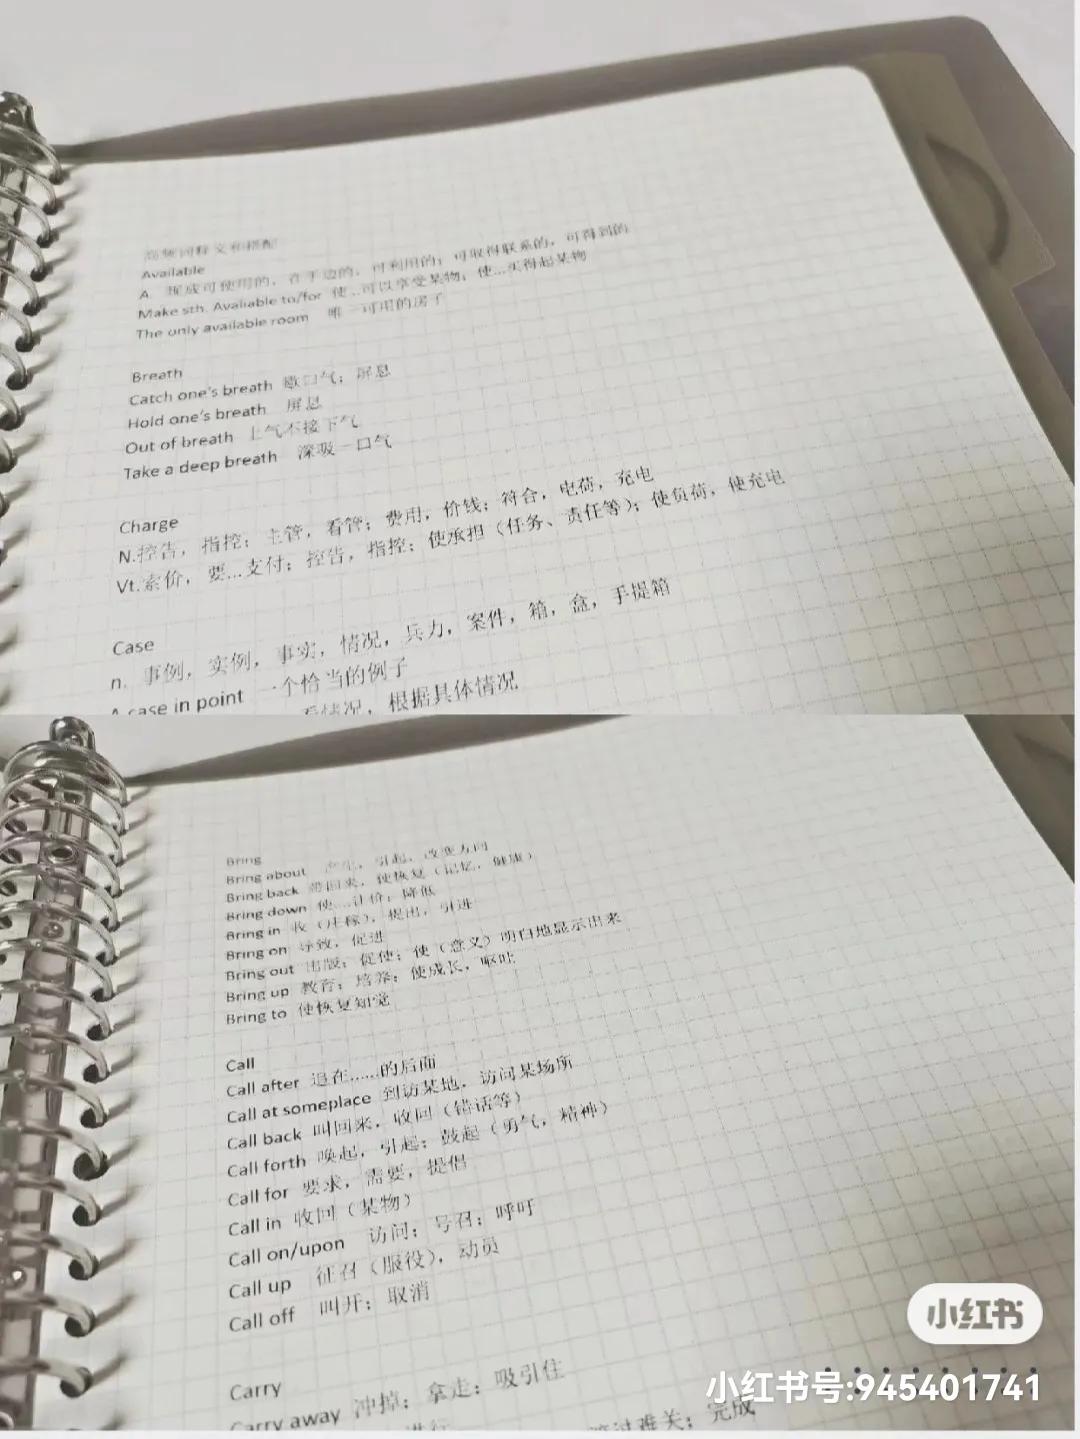 高频词释义和搭配
Available
A. 现成可使用的，在手边的，可利用的；可取得联系的，可得到的
Make sth. Available to/for 使…可以享受某物；使…买得起某物
The only available room 唯一可用的房子
Breath
Catch one's breath 歇口气；屏息
Hold one's breath 屏息
Out of breath 上气不接下气
Take a deep breath 深吸一口气
Charge
N.控告，指控；主管，看管；费用，价钱；符合，电荷，充电
Vt.索价，要…支付；控告，指控；使承担（任务、责任等）；使负荷，使充电
Case
n. 事例，实例，事实，情况，兵力，案件，箱，盒，手提箱
A case in point 一个恰当的例子
看情况，根据具体情况
Bring
Bring about 产生，引起，改变方向
Bring back 带回来，使恢复（记忆，健康）
Bring down 使…让价；降低
Bring in 收（庄稼），提出，引进
Bring on 导致，促进
Bring out 出版；促使；使（意义）明白地显示出来
Bring up 教育；培养；使成长，呕吐
Bring to 使恢复知觉
Call
Call after 追在……的后面
Call at someplace 到访某地，访问某场所
Call back 叫回来，收回（错话等）
Call forth 唤起，引起；鼓起（勇气，精神）
Call for 要求，需要，提倡
Call in 收回（某物）
Call on/upon 访问；号召；呼吁
Call up 征召（服役），动员
Call off 叫开；取消
Carry
Carry away 冲掉；拿走；吸引住
进行
渡过难关；完成
小红书
小红书号:945401741